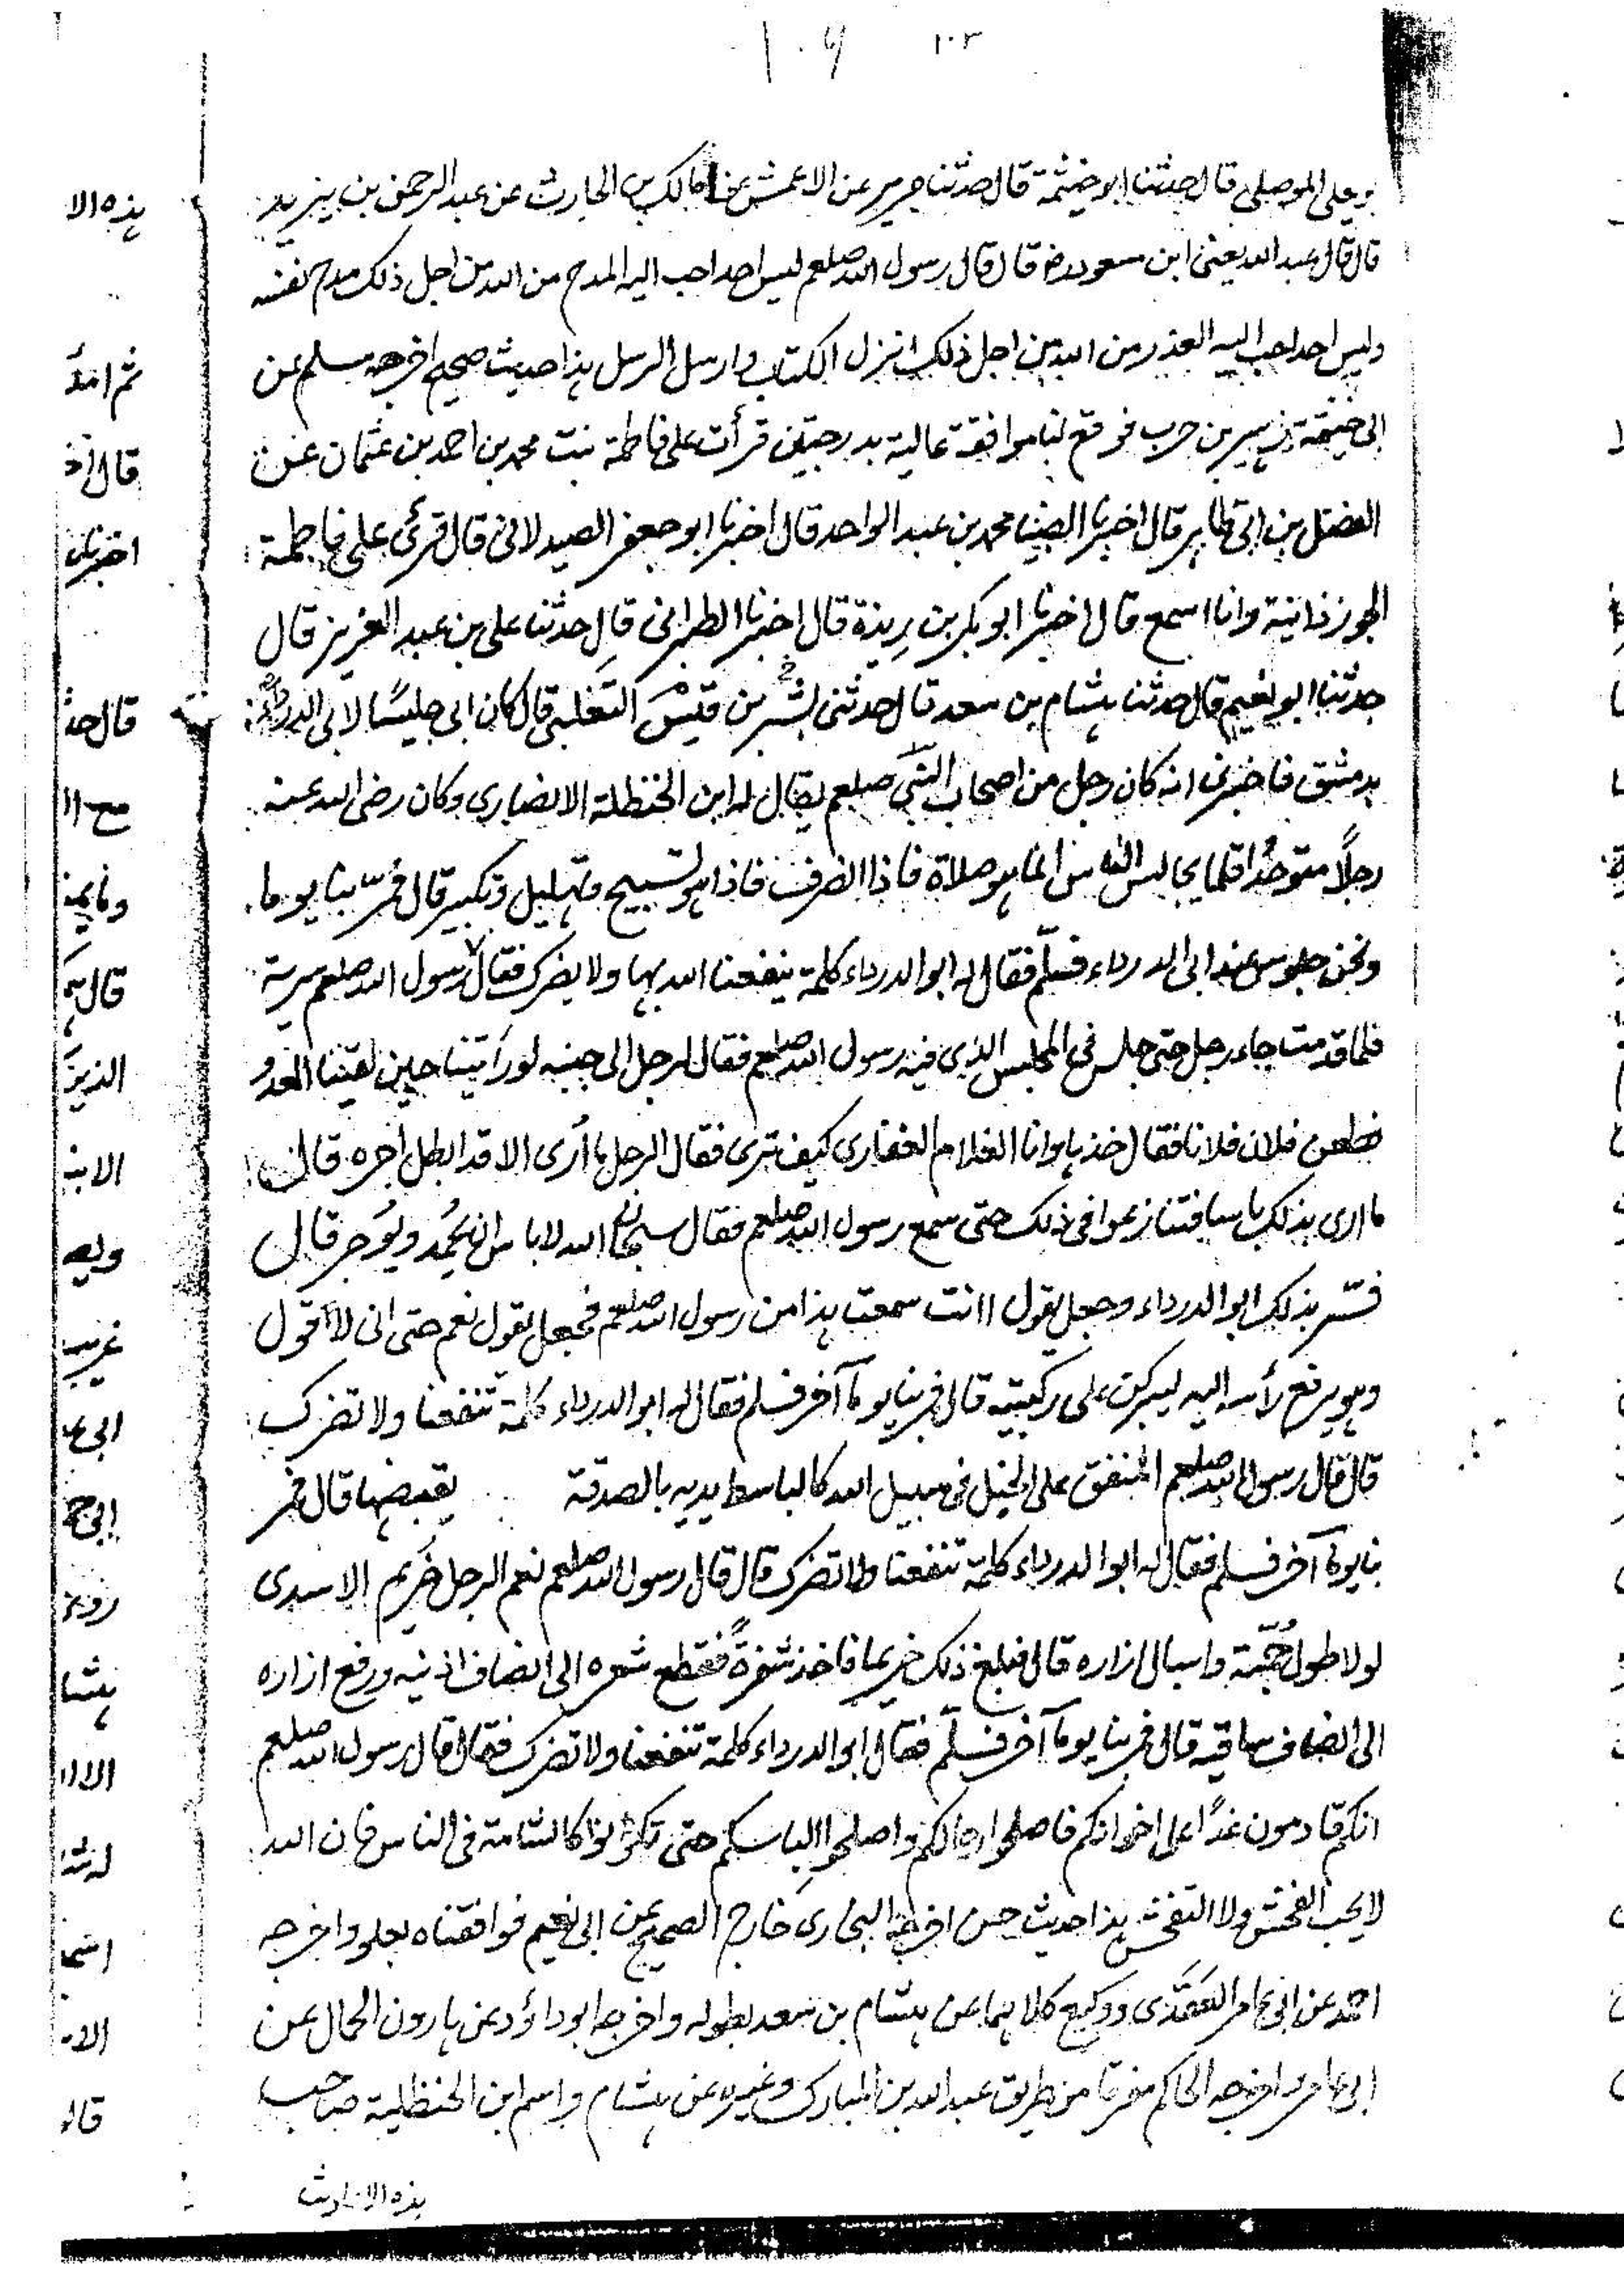 ١٠٦ ١٠٣
يعلى الموصلى قال حدثنا ابو خيثمة قال حدثنا جرير عن الاعمش عن مالك بن الحارث عن عبد الرحمن بن يزيد
قال قال عبد الله يعنى ابن مسعود رضـ قال قال رسول الله صلعم ليس احد احب اليه المدح من الله من اجل ذلك مدح نفسه
وليس احد احب اليه العذر من الله من اجل ذلك انزل الكتاب وارسل الرسل هذا حديث صحيح اخرجه مسلم عن
ابى خيثمة زهير بن حرب فوقع لنا موافقة عالية بدرجتين قرأت على فاطمة بنت محمد بن احمد بن عثمان عن
الفضل بن ابى طاهر قال اخبرنا الضيا محمد بن عبد الواحد قال اخبرنا ابو جعفر الصيدلانى قال قرئ على فاطمة
الجوزذانية وانا اسمع قال اخبرنا ابو بكر بن رِيذة قال اخبرنا الطبرانى قال حدثنا على بن عبد العزيز قال
حدثنا ابو نعيم قال حدثنا هشام بن سعد قال حدثنى بشر بن قيس التغلبى قال كان ابى جليسًا لابى الدرداء
بدمشق فاخبرنى انه كان رجل من اصحاب النبى صلعم يقال له ابن الحنظلة الانصارى وكان رضى الله عنه
رجلاً متوحدًا قلما يجالس الناس انما هو صلاة فاذا انصرف فاذا هو تسبيح وتهليل وتكبير قال فمرّ بنا يوما
ونحن جلوس عند ابى الدرداء فسلّم فقال له ابو الدرداء كلمة ينفعنا الله بها ولا يضرك فقال رسول الله صلعم سرية
فلما قدمت جاء رجل حتى جلس فى المجلس الذى فيه رسول الله صلعم فقال لرجل الى جنبه لو رأيتنا حين لقينا العدو
فطعن فلان فلانا فقال خذها وانا الغلام الغفارى كيف ترى فقال الرجل ما أرى الا قد ابطل اجره قال
ما ارى بذلك باسا فتنازعوا فى ذلك حتى سمع رسول الله صلعم فقال سبحان الله لا باس ان يُحمد ويُوجر قال
فسُر بذلك ابو الدرداء وجعل يقول اانت سمعت هذا من رسول الله صلعم فجعل يقول نعم حتى انى لاقول
وهو يرفع رأسه اليه ليبركن على ركبتيه قال فمر بنا يومًا آخر فسلم فقال له ابو الدرداء كلمة تنفعنا ولا تضرك
قال قال رسول الله صلعم المنفق على الخيل فى سبيل الله كالباسط يديه بالصدقة يقبضها قال فمر
بنا يومًا آخر فسلم فقال له ابو الدرداء كلمة تنفعنا ولا تضرك قال قال رسول الله صلعم نعم الرجل خُريم الاسدى
لولا طول جُمّته واسبال ازاره قال فبلغ ذلك خريما فاخذ شفرةً فقطع شعره الى انصاف اذنيه ورفع ازاره
الى انصاف ساقيه قال فمر بنا يومًا آخر فسلّم فقال ابو الدرداء كلمة تنفعنا ولا تضرك فقال قال رسول الله صلعم
انكم قادمون غدًا على اخوانكم فاصلحوا رحالكم واصلحوا لباسكم حتى تكونوا كالشامة فى الناس فان الله
لا يحب الفحش ولا التفحش هذا حديث حسن اخرجه البخارى خارج الصحيح عن ابى نعيم فوافقناه بعلو واخرجه
احمد عن ابى عامر العَقَدى ووكيع كلاهما عن هشام بن سعد بطوله واخرجه ابو داؤد عن هارون الحمال عن
ابى عامر واخرجه الحاكم مفرقا من طريق عبد الله بن المبارك وغيره عن هشام واسم ابن الحنظلية صاحب
هذه الاحاديث